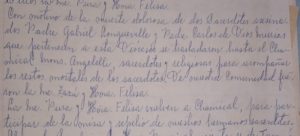 la Me. Pura y Hona Felisa.
Con motivo de la muerte dolorosa de dos Sacerdotes asesinados
Padre Gabriel Longueville y Padre Carlos de Dios Murias
que pertenecen a esta Diócesis se trasladaron hasta el Chamical
Mons. Angelelli, sacerdotes y religiosas para acompañar
los restos mortales de los sacerdotes. De nuestra Comunidad fueron
la Me. Pura y Hona Felisa.
La Me. Pura y Hona Felisa vuelven a Chamical, para participar
de la misa y sepelio de nuestros hermanos sacerdotes.